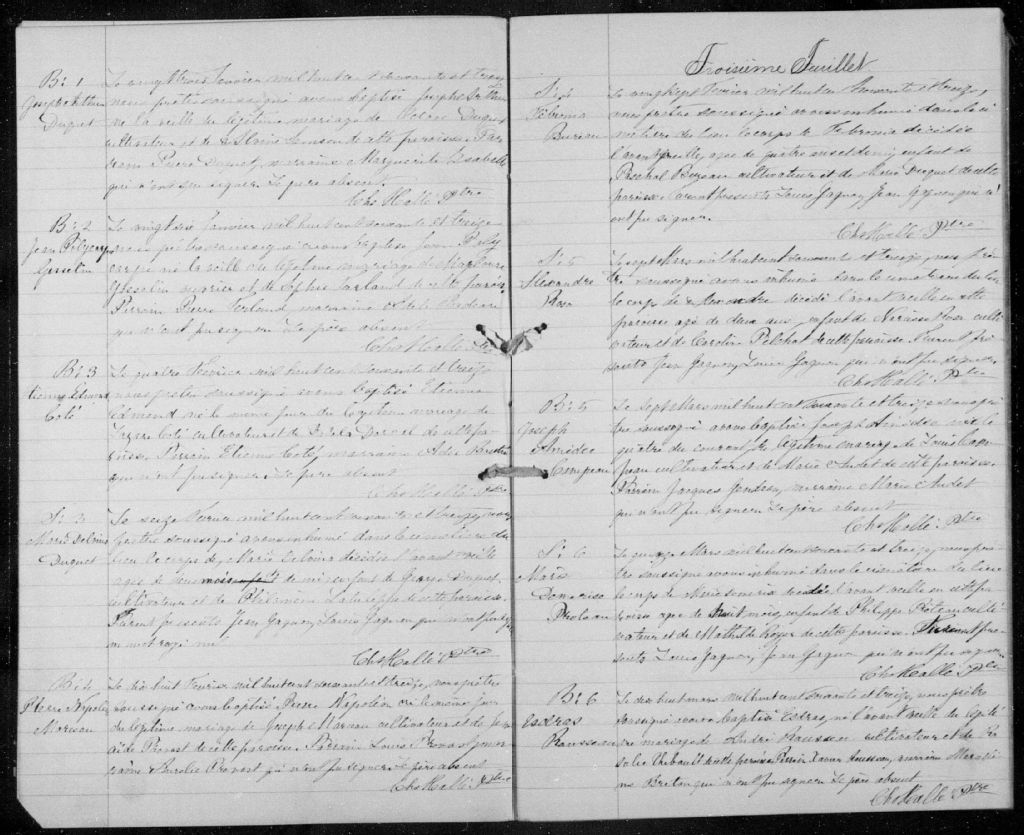 B: 1
Joseph Arthur
Duquet
Le vingt trois Janvier mil huit cent soixante et treize
nous prêtre soussigné avons baptisé Joseph Arthur
né la veille du légitime mariage de Duquet
cultivateur et de de cette paroisse. Par
rain Pierre Duquet, marraine Marguerite
qui n'ont su signer. Le père absent.
Chs Hallé Ptre
B: 2
Jean Polycarpe
Gosselin
Le vingt six Janvier mil huit cent soixante et treize
nous prêtre soussigné avons baptisé Jean Poly
carpe né la veille du légitime mariage de
Gosselin et de Sophie de cette paroisse
Parrain Pierre marraine
qui n'ont pu signer. Le père absent
Chs Hallé Ptre
B: 3
Etienne Edmond
Coté
Le quatre Février mil huit cent soixante et treize
nous prêtre soussigné avons baptisé Etienne
Edmond né le même jour du légitime mariage de
Coté cultivateur et de de cette pa
roisse. Parrain Etienne Coté, marraine
qui n'ont pu signer. Le père absent
Chs Hallé Ptre
S: 3
Marie
Duquet
Le seize Février mil huit cent soixante et treize, nous
prêtre soussigné avons inhumé dans le cimetière du
lieu le corps de Marie décédée l'avant veille
agée de mois et demi, enfant de George Duquet
cultivateur et de Philomène de cette paroisse.
Furent présents Jean Gagnon, Louis Gagnon qui n'ont pu signer
un mot rayé nul
Chs Hallé Ptre
B: 4
Pierre Napoléon
Le dix huit Février mil huit cent soixante et treize, nous prêtre
soussigné avons baptisé Pierre Napoléon né le même jour
du légitime mariage de Joseph cultivateur et de
Provost de cette paroisse. Parrain Louis Provost, mar
raine Provost qui n'ont pu signer. Le père absent
Chs Hallé Ptre
Troisième Feuillet
S: 4
Febronie
Le vingt sept Février mil huit cent soixante et treize,
nous prêtre soussigné avons inhumé dans le ci
metière du lieu le corps de Febronie décédée
l'avant veille, agée de quatre ans et demi, enfant de
Paschal cultivateur et de Marie Duquet de cette
paroisse. Furent présents Louis Gagnon, Jean Gagnon qui n'
ont pu signer.
Chs Hallé Ptre
S: 5
Alexandre
Rose
Le sept Mars mil huit cent soixante et treize, nous prê
tre soussigné avons inhumé dans le cimetière du lieu
le corps de Alexandre décédé l'avant veille en cette
paroisse agé de deux ans, enfant de Rose culti
vateur et de Caroline Pelchat de cette paroisse. Furent pré
sents Jean Gagnon, Louis Gagnon qui n'ont pu signer.
Chs Hallé Ptre
B: 5
Joseph
Amédée
Campeau
Le sept Mars mil huit cent soixante et treize nous prê
tre soussigné avons baptisé Joseph Amédée né le
quatre du courant du légitime mariage de Louis Cam
peau cultivateur et de Marie Audet de cette paroisse.
Parrain Jacques Gendron, marraine Marie Audet
qui n'ont pu signer. Le père absent
Chs Hallé Ptre
S: 6
Marie
Le Mars mil huit cent soixante et treize, nous prê
tre soussigné avons inhumé dans le cimetière du lieu
le corps de Marie décédée l'avant veille en cette pa
roisse agée de huit mois, enfant de Philippe culti
vateur et de Mathilde de cette paroisse. Furent pré
sents Louis Gagnon, Jean Gagnon qui n'ont pu signer.
Chs Hallé Ptre
B: 6
Esdras
Rousseau
Le dix huit mars mil huit cent soixante et treize, nous prêtre
soussigné avons baptisé Esdras, né l'avant veille du légiti
me mariage de André Rousseau cultivateur et de
de cette paroisse. Parrain Xavier Rousseau, marraine
Breton qui n'ont pu signer. Le père absent
Chs Hallé Ptre